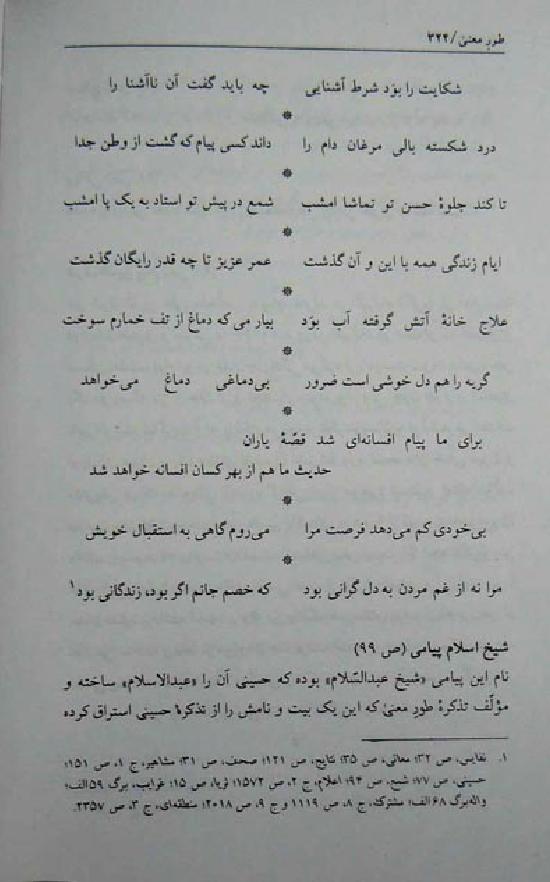 طور معنی/۳۲۲
شکایت را بوَد شرط آشنایی چه باید گفت آن ناآشنا را
*
درد شکسته بالی مرغان دام را داند کسی پیام که گشت از وطن جدا
*
تا کند جلوهٔ حسن تو تماشا امشب شمع در پیش تو استاد به یک پا امشب
*
ایام زندگی همه با این و آن گذشت عمر عزیز تا چه قدر رایگان گذشت
*
علاج خانهٔ آتش گرفته آب بوَد بیار می که دماغ از تف خمارم سوخت
*
گریه را هم دل خوشی است ضرور بی‌دماغی دماغ می‌خواهد
*
برای ما پیام افسانه‌ای شد قصّهٔ یاران
حدیث ما هم از بهر کسان افسانه خواهد شد
*
بی‌خودی کم می‌دهد فرصت مرا می‌روم گاهی به استقبال خویش
*
مرا نه از غم مردن به دل گرانی بود که خصم جانم اگر بود، زندگانی بود۱
شیخ اسلام پیامی (ص ۹۹)
نام این پیامی «شیخ عبدالسّلام» بوده که حسینی آن را «عبدالاسلام» ساخته و
مؤلّف تذکرهٔ طور معنی که این یک بیت و نامش را از تذکرهٔ حسینی استراق کرده
۱. نفایس، ص ۳۲؛ معانی، ص ۳۵؛ نتایج، ص ۱۲۱؛ صحف، ص ۳۱؛ مشاهیر، ج ۱، ص ۱۵۱؛
حسینی، ص ۷۷؛ شمع، ص ۹۴؛ اعلام، ج ۲، ص ۱۵۷۲؛ ثریا، ص ۱۵؛ غرایب، برگ ۵۹الف؛
واله‌برگ ۶۸الف؛ مشترک، ج ۸، ص ۱۱۱۹ و ج ۹، ص ۲۰۱۸؛ منطقه‌ای، ج ۳، ص ۲۳۵۷.